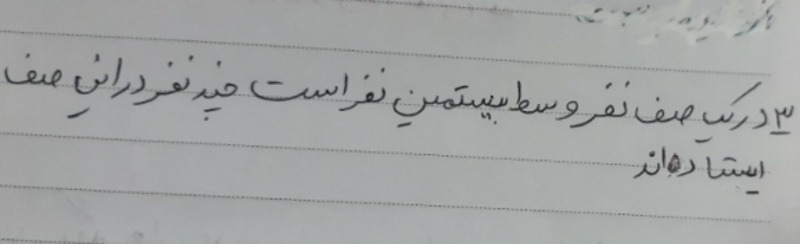 ۳ در یک صف نفر وسط بیستمین نفر است چند نفر در این صف
ایستاده‌اند